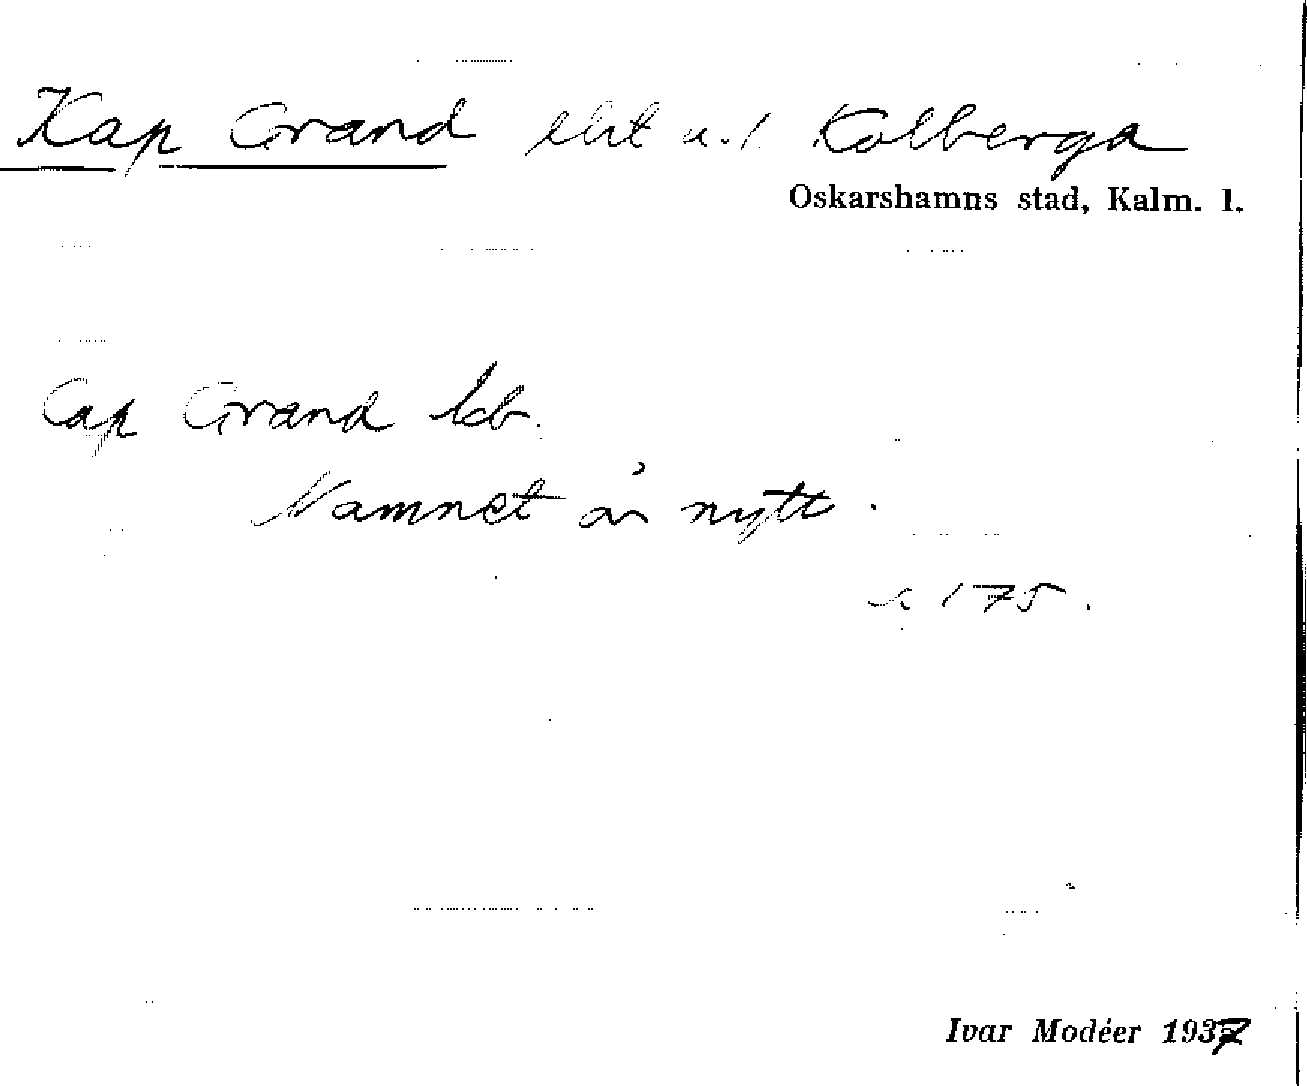 Kap Grand u. / Kolberga
Oskarshamns stad, Kalm. l.
Cap Grand lcb.
Namnet är nytt.
s 175.
Ivar Modéer 1937